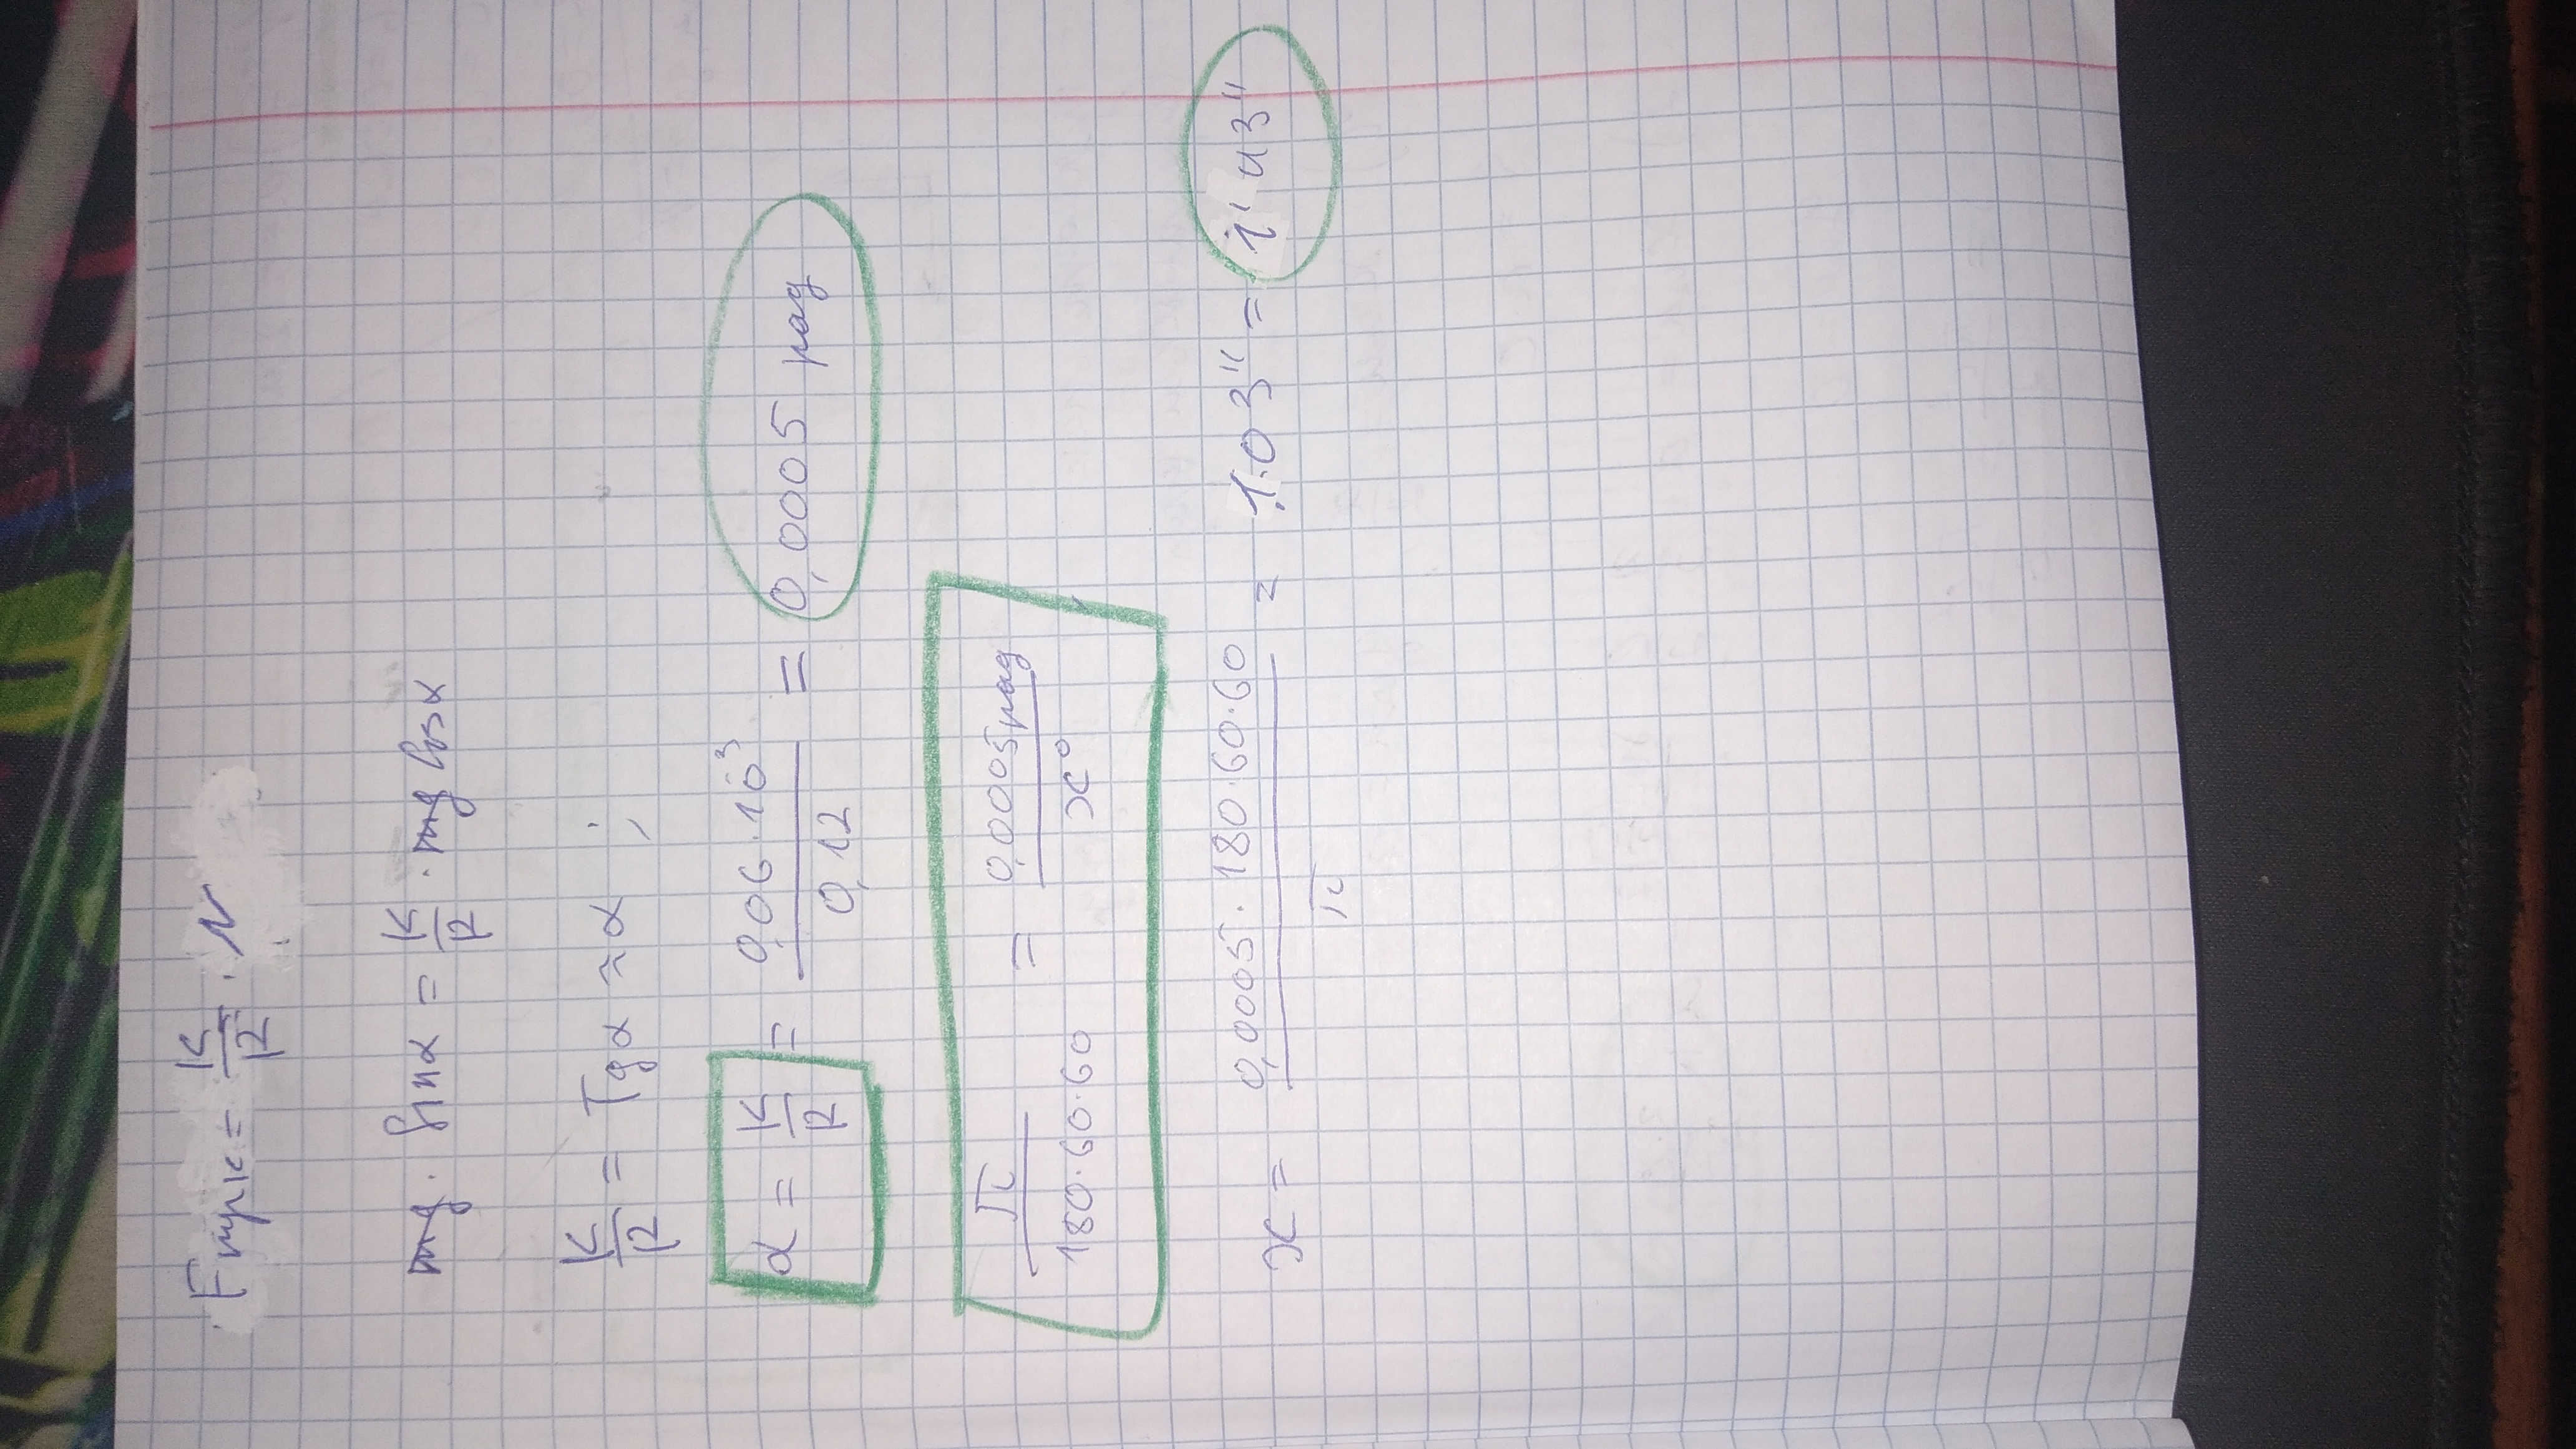 Fтрк = K/R · N
mg · Sinα = K/R · mg Cosα
K/R = Tgα ≈ α ;
α = K/R = 0,06·10⁻³/0,12 = 0,0005 рад
π/180·60·60 = 0,0005рад/x°
x = 0,0005·180·60·60/π = 103" = 1' 43"